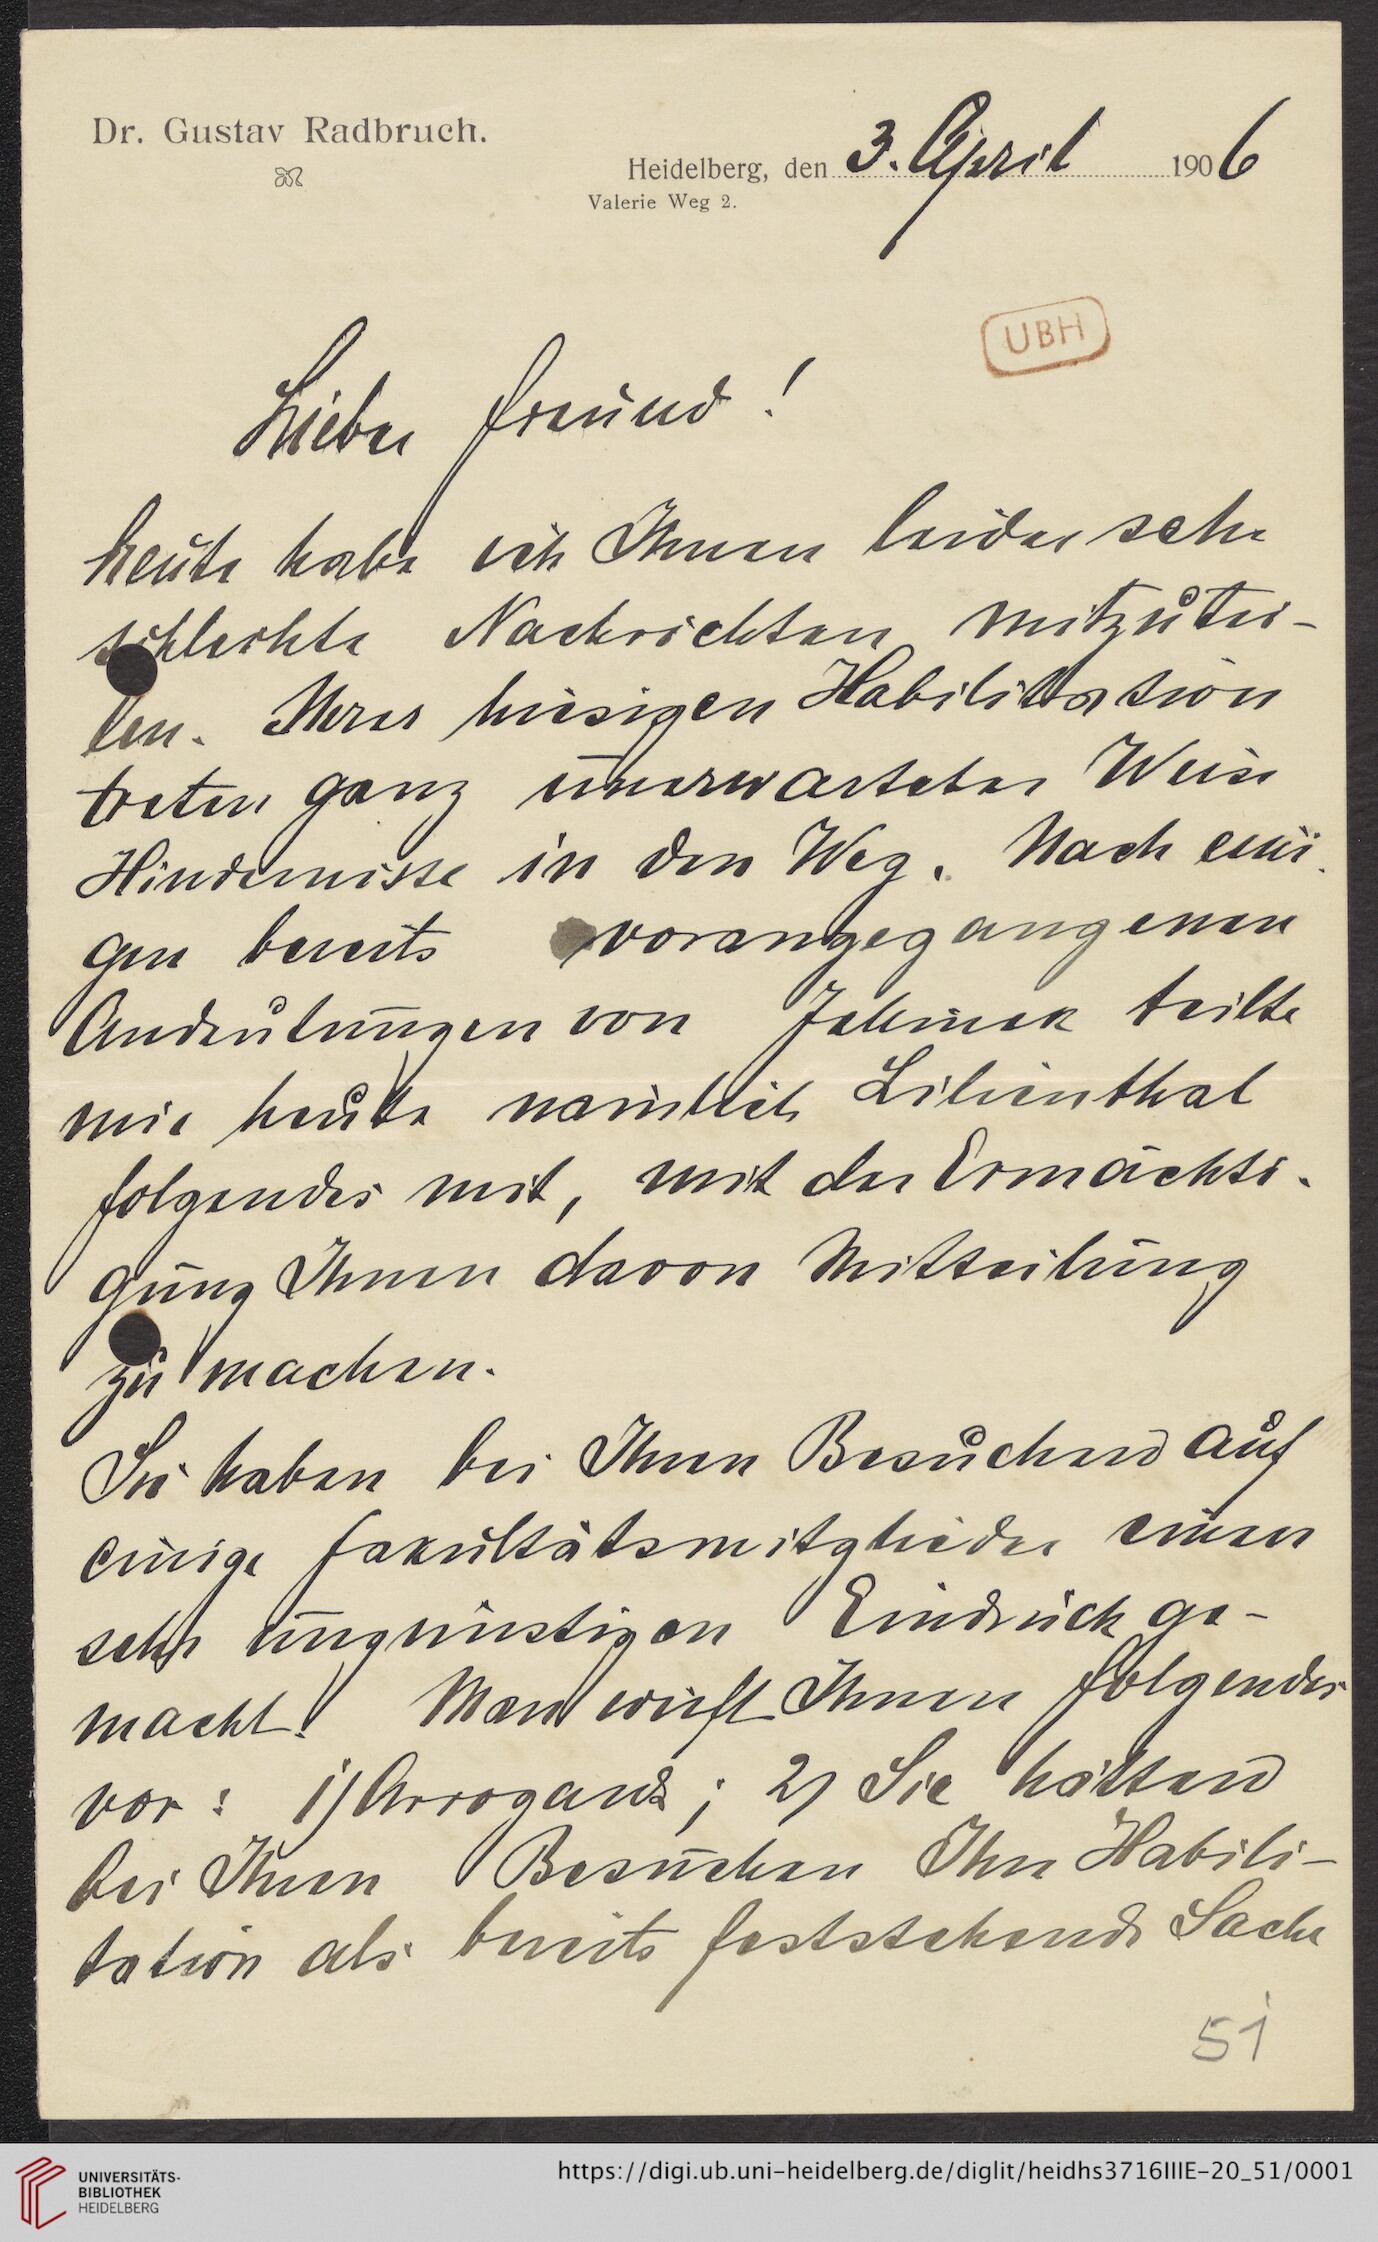 Dr. Gustav Radbruch.
Heidelberg, den 3. April 1906
Valerie Weg 2.
UBH
Lieber Freund!
heute habe ich Ihnen leider sehr
schlechte Nachrichten mitzutei-
len. Ihrer hiesigen Habilitation
treten ganz unerwarteter Weise
Hindernisse in den Weg. Nach eini-
gen bereits vorangegangenen
Andeutungen von Jellinek teilte
mir heute nämlich Lilienthal
folgendes mit, mit der Ermächti-
gung Ihnen davon Mitteilung
zu machen.
Sie haben bei Ihren Besuchen auf
einige Fakultätsmitglieder einen
sehr ungünstigen Eindruck ge-
macht. Man wirft Ihnen folgendes
vor: 1) Arroganz; 2) Sie hätten
bei Ihren Besuchen Ihre Habili-
tation als bereits feststehende Sache
51
UNIVERSITÄTS-
BIBLIOTHEK
HEIDELBERG
https://digi.ub.uni-heidelberg.de/diglit/heidhs3716IIIE-20_51/0001